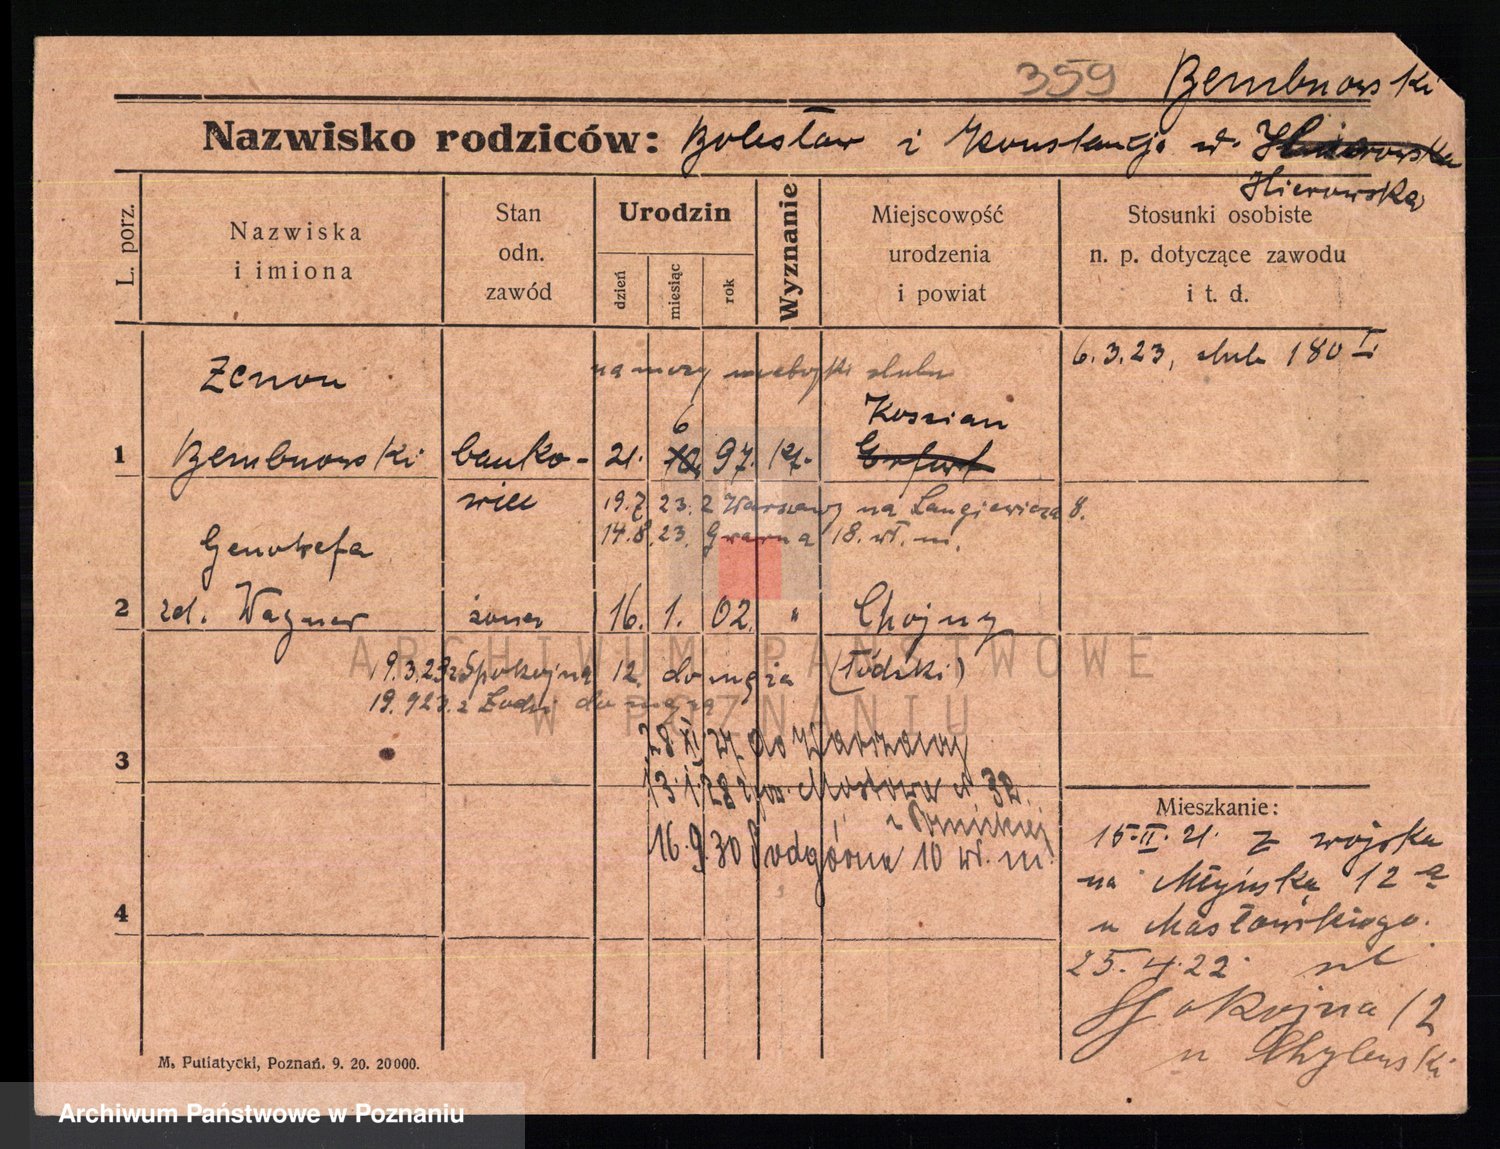 359 Bembnowski
Nazwisko rodziców: Bolesław i Konstancja
Hierowska
L. porz.
Nazwiska
i imiona
Stan
odn.
zawód
Urodzin
dzień
miesiąc
rok
Wyznanie
Miejscowość
urodzenia
i powiat
Stosunki osobiste
n. p. dotyczące zawodu
i t. d.
6.3.23, ślub 180 I.
Zenon
na mocy metryki ślubu
Koscian
1 Bembnowski banko- 21. 6 97. kt. Erfurt
wiec
19.7 23. z Warszawy na Langiewicza 8.
14.8.23. Gwarna 18. wł. m.
Genowefa
2 zd. Wagner żona 16. 1. 02. " Chojny
9.3.23 z Spokojna 12. do męża (Łódzki)
19.923. z Łodzi do męża
28 XI 27 do Warszawy
3
13.1.28 Mostowa 32.
16.9.30 Podgórna 10 wł. m.
4
Mieszkanie:
15.II.21. z wojska
na Młyńską 12a
u Masłowskiego.
25.4.22. ul
Spokojna 12
u Chylewski
M. Putiatycki, Poznań. 9. 20. 20000.
ARCHIWUM PAŃSTWOWE
W POZNANIU
Archiwum Państwowe w Poznaniu